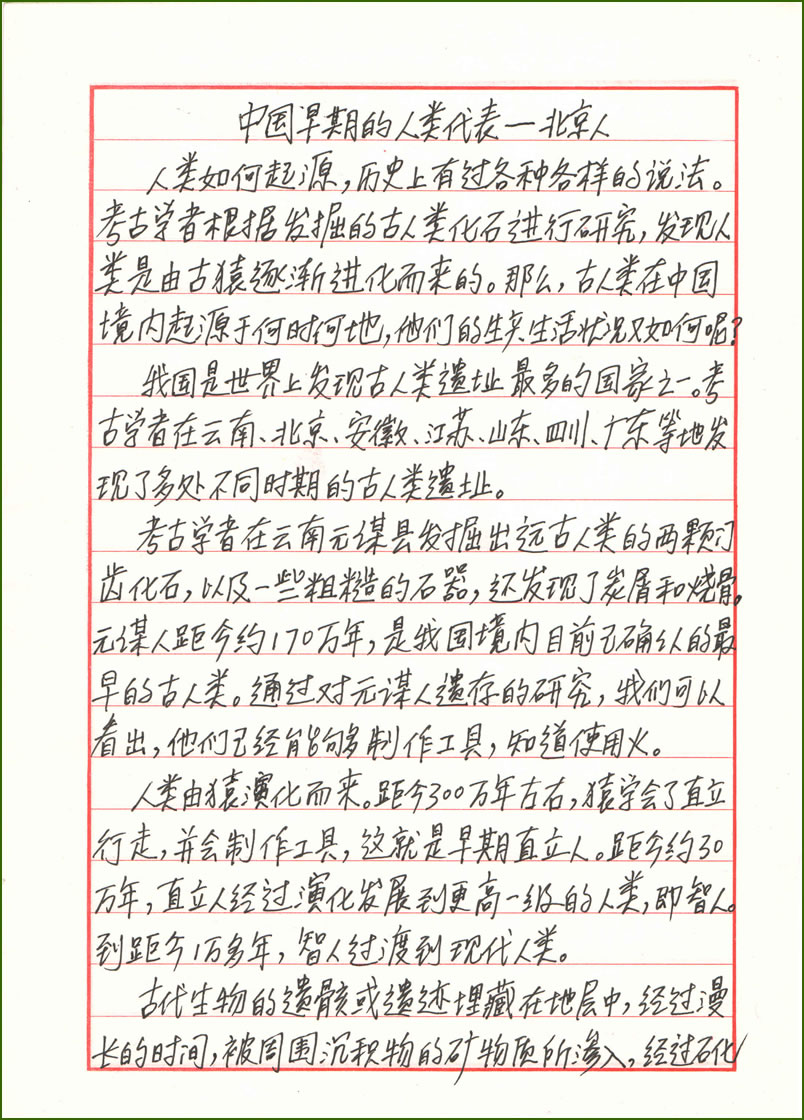 中国早期的人类代表—北京人
人类如何起源，历史上有过各种各样的说法。
考古学者根据发掘的古人类化石进行研究，发现人
类是由古猿逐渐进化而来的。那么，古人类在中国
境内起源于何时何地，他们的生产生活状况又如何呢？
我国是世界上发现古人类遗址最多的国家之一。考
古学者在云南、北京、安徽、江苏、山东、四川、广东等地发
现了多处不同时期的古人类遗址。
考古学者在云南元谋县发掘出远古人类的两颗门
齿化石，以及一些粗糙的石器，还发现了炭屑和烧骨。
元谋人距今约170万年，是我国境内目前已确认的最
早的古人类。通过对元谋人遗存的研究，我们可以
看出，他们已经能够制作工具，知道使用火。
人类由猿演化而来。距今300万年左右，猿学会了直立
行走，并会制作工具，这就是早期直立人。距今约30
万年，直立人经过演化发展到更高一级的人类，即智人。
到距今1万多年，智人过渡到现代人类。
古代生物的遗骸或遗迹埋藏在地层中，经过漫
长的时间，被周围沉积物的矿物质所渗入，经过石化